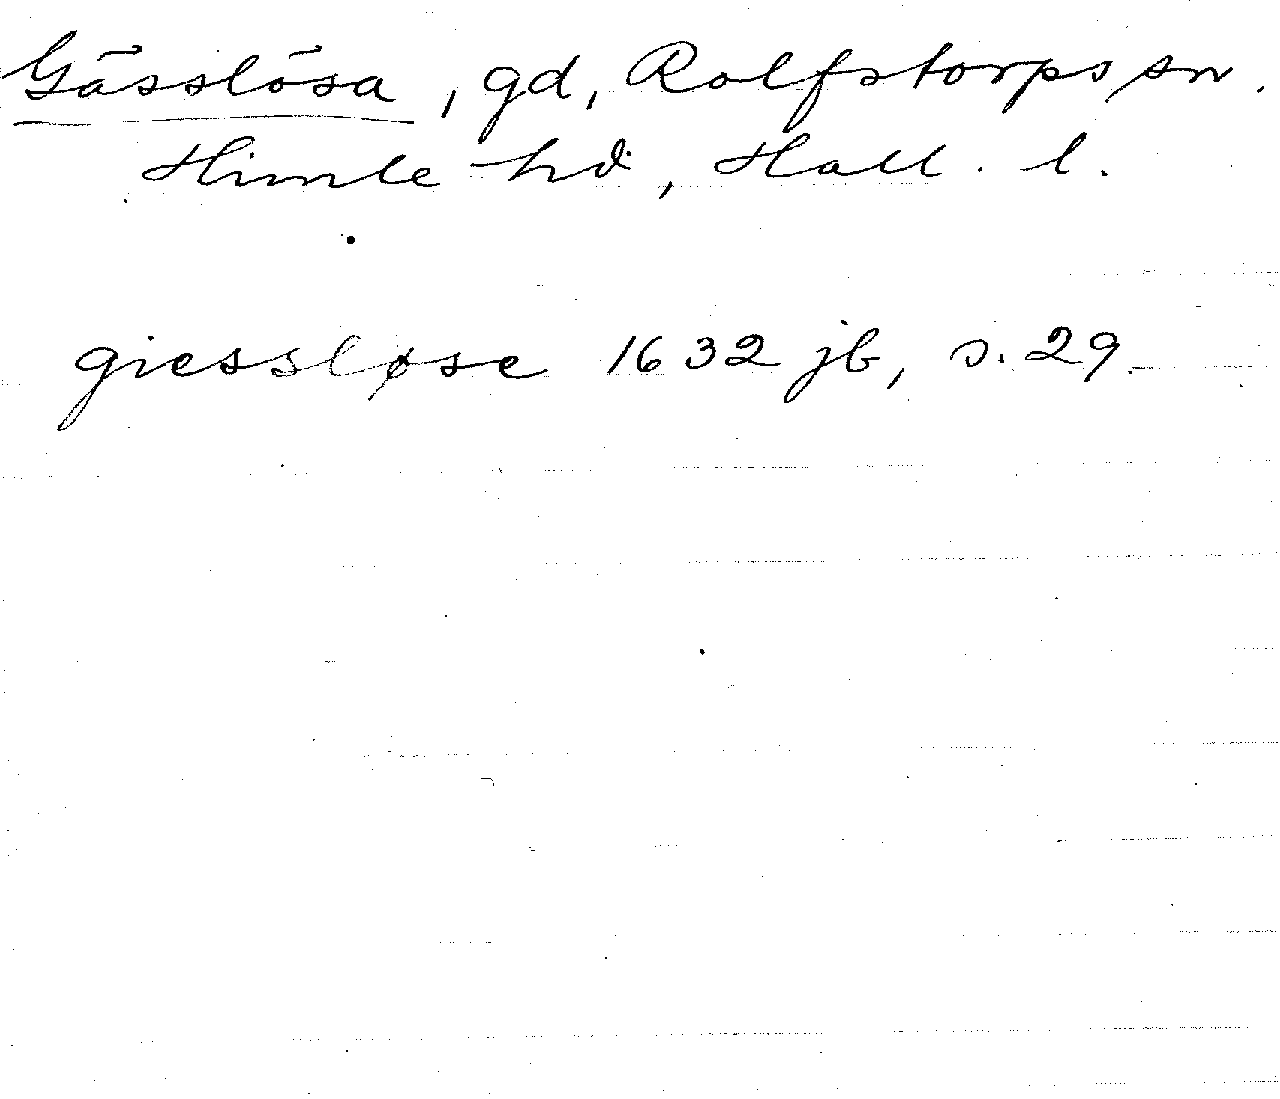 Gässlösa, gd, Rolfstorps sn.
Himle hd, Hall. l.
giessløse 1632 jb, s. 29